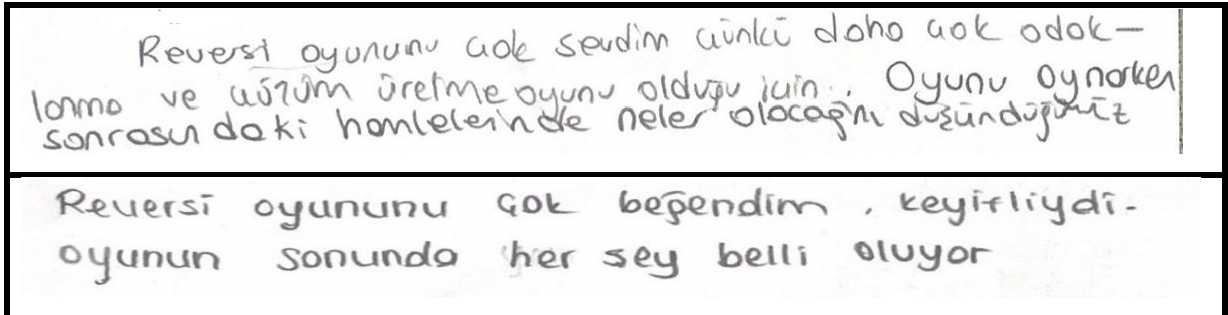 Reversi oyununu çok sevdim çünkü daha çok odak-
lanma ve çözüm üretme oyunu olduğu için. Oyunu oynarken
sonrasındaki hamlelerinde neler olacağını düşündüğümüz
Reversi oyununu çok beğendim. keyifliydi.
oyunun sonunda her şey belli oluyor